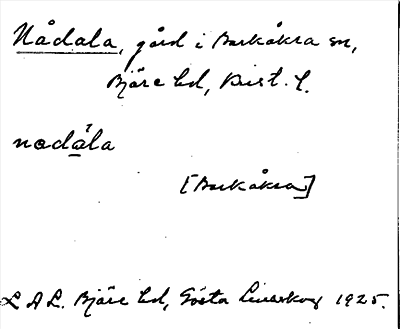 Nådala, gård i Barkåkra sn,
Bjäre hd, Krist. l.
nodála
[Barkåkra]
L A L. Bjäre hd, Gösta 1925.